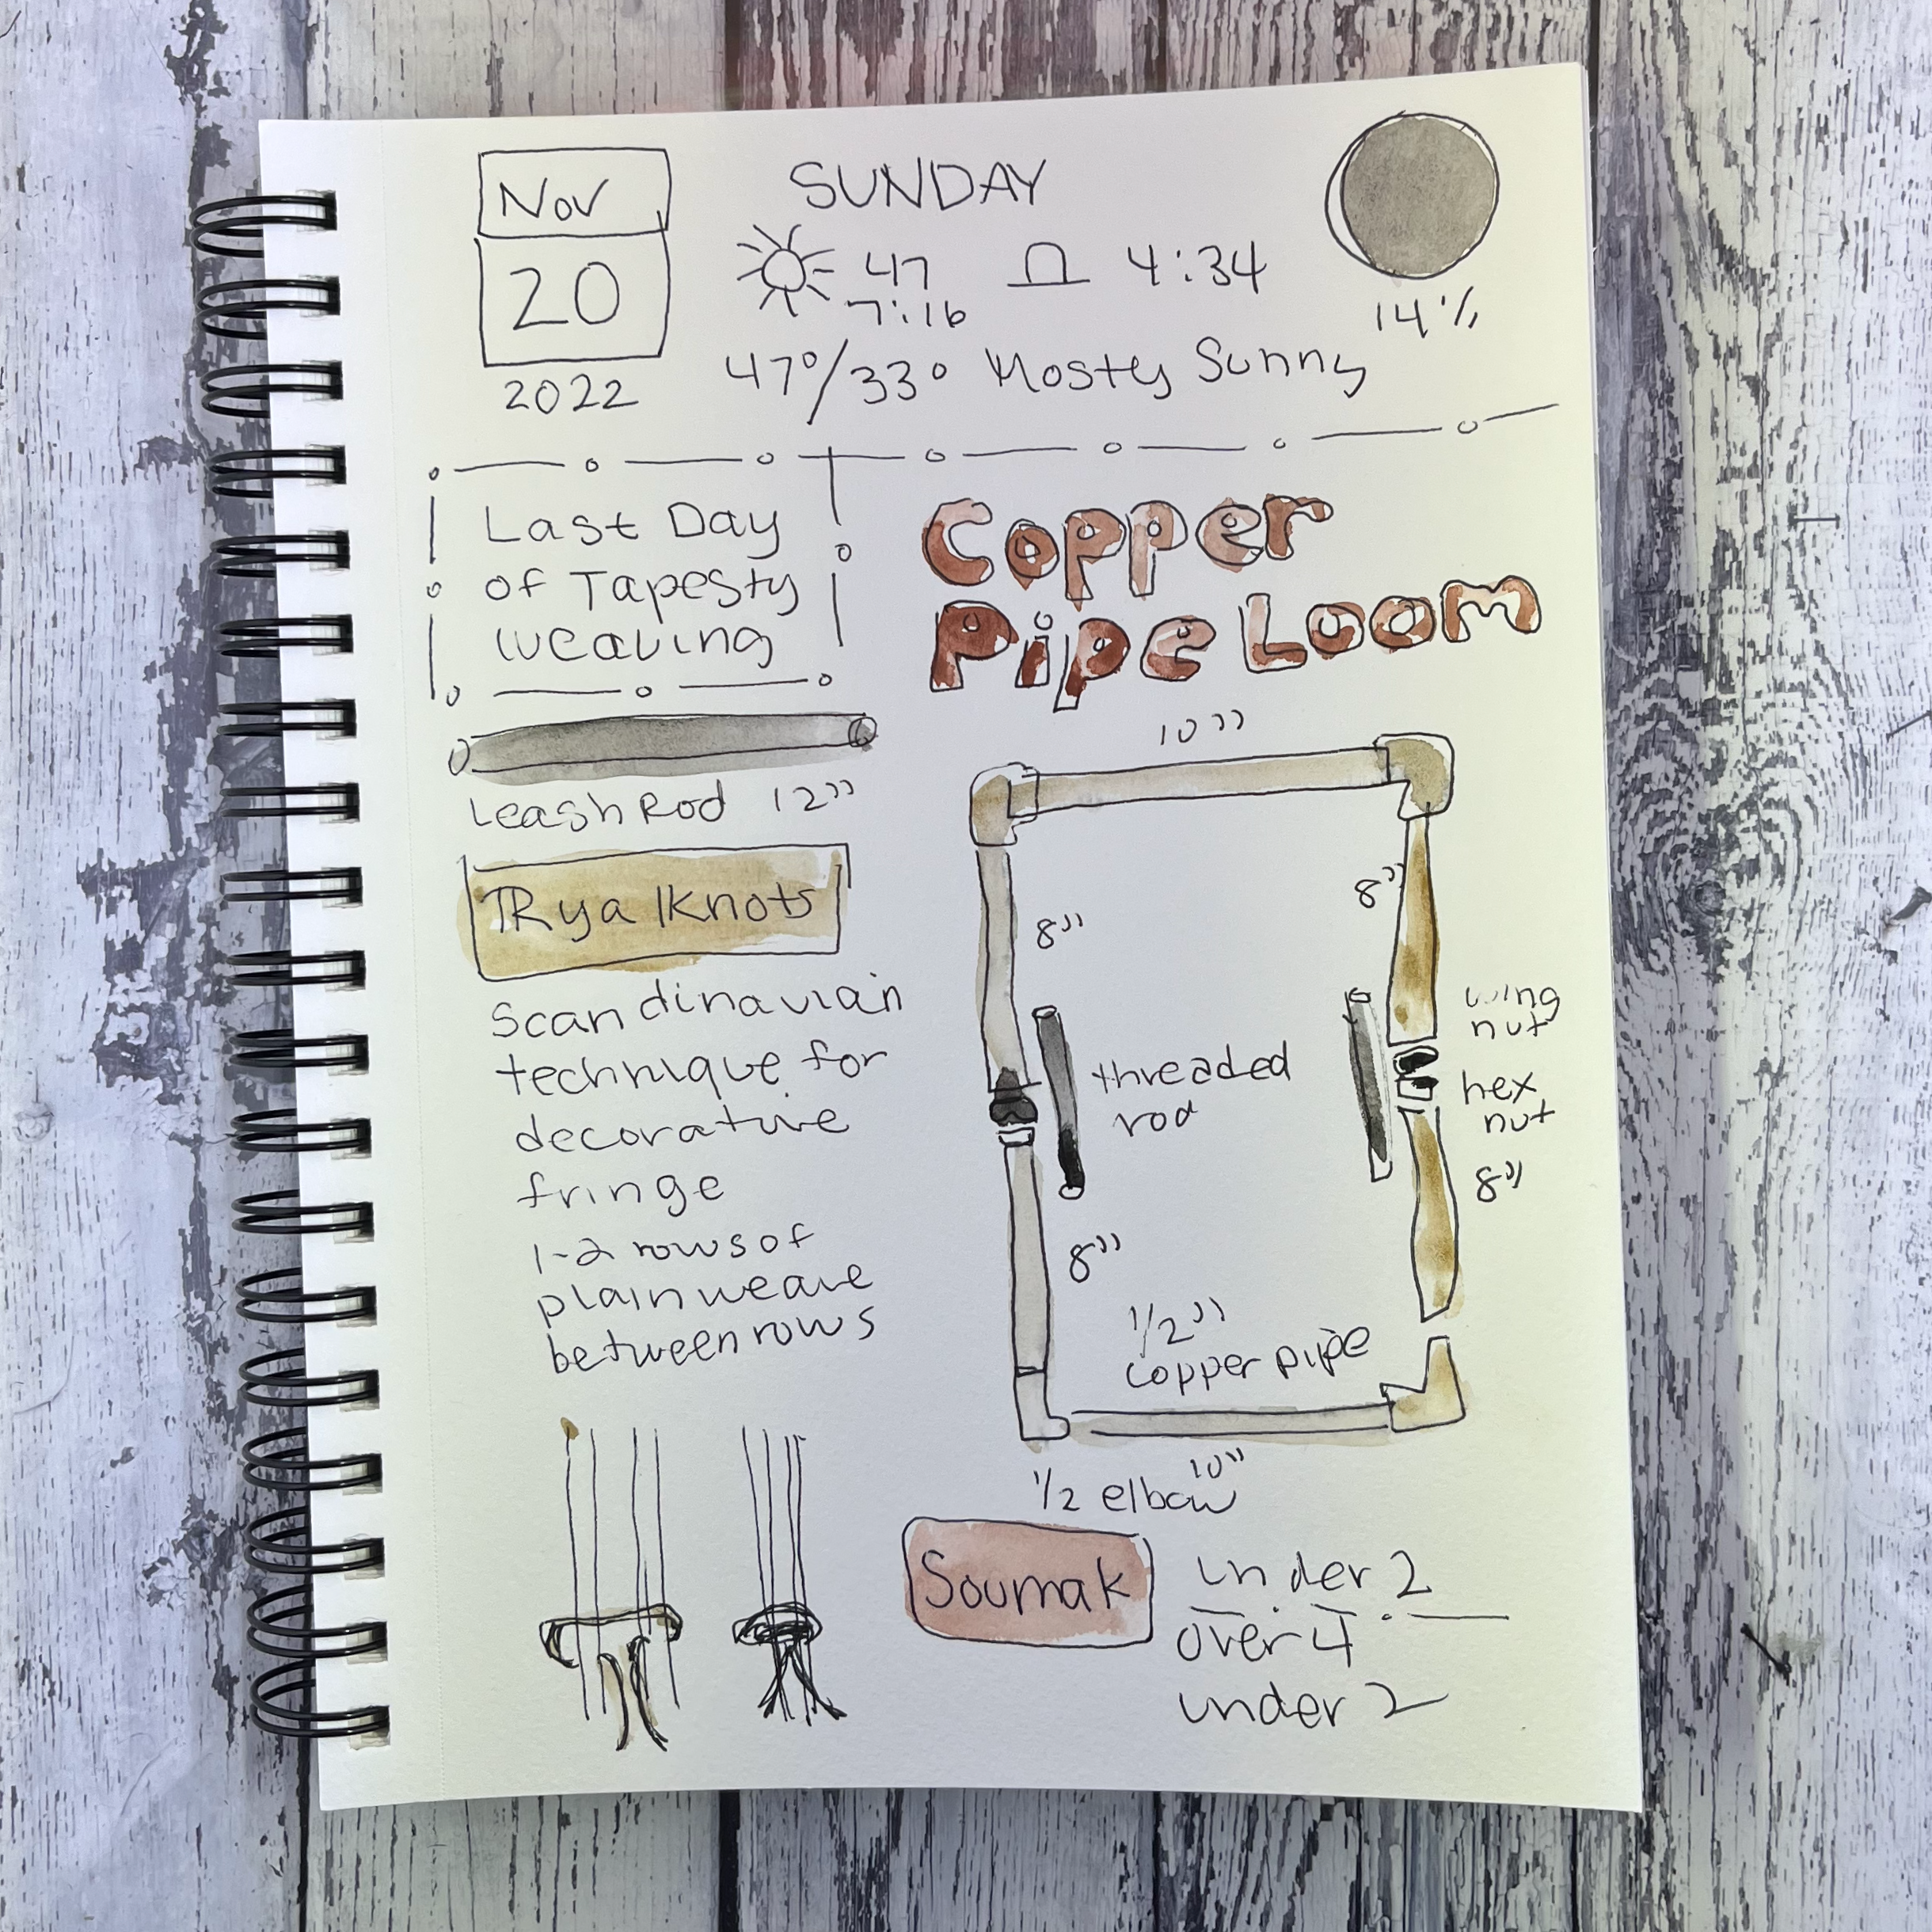 Nov
20
2022
SUNDAY
47
7:16
4:34
14%
47°/33° Mosty Sunny
Last Day
of Tapesty
weaving
Copper
Pipe Loom
Leash Rod 12"
Rya Knots
Scandinavian
technique for
decorative
fringe
1-2 rows of
plain weave
between rows
10"
8"
8"
threaded
rod
wing
nut
hex
nut
8"
8"
1/2"
copper pipe
10"
1/2 elbow
Soumak
under 2
over 4
under 2